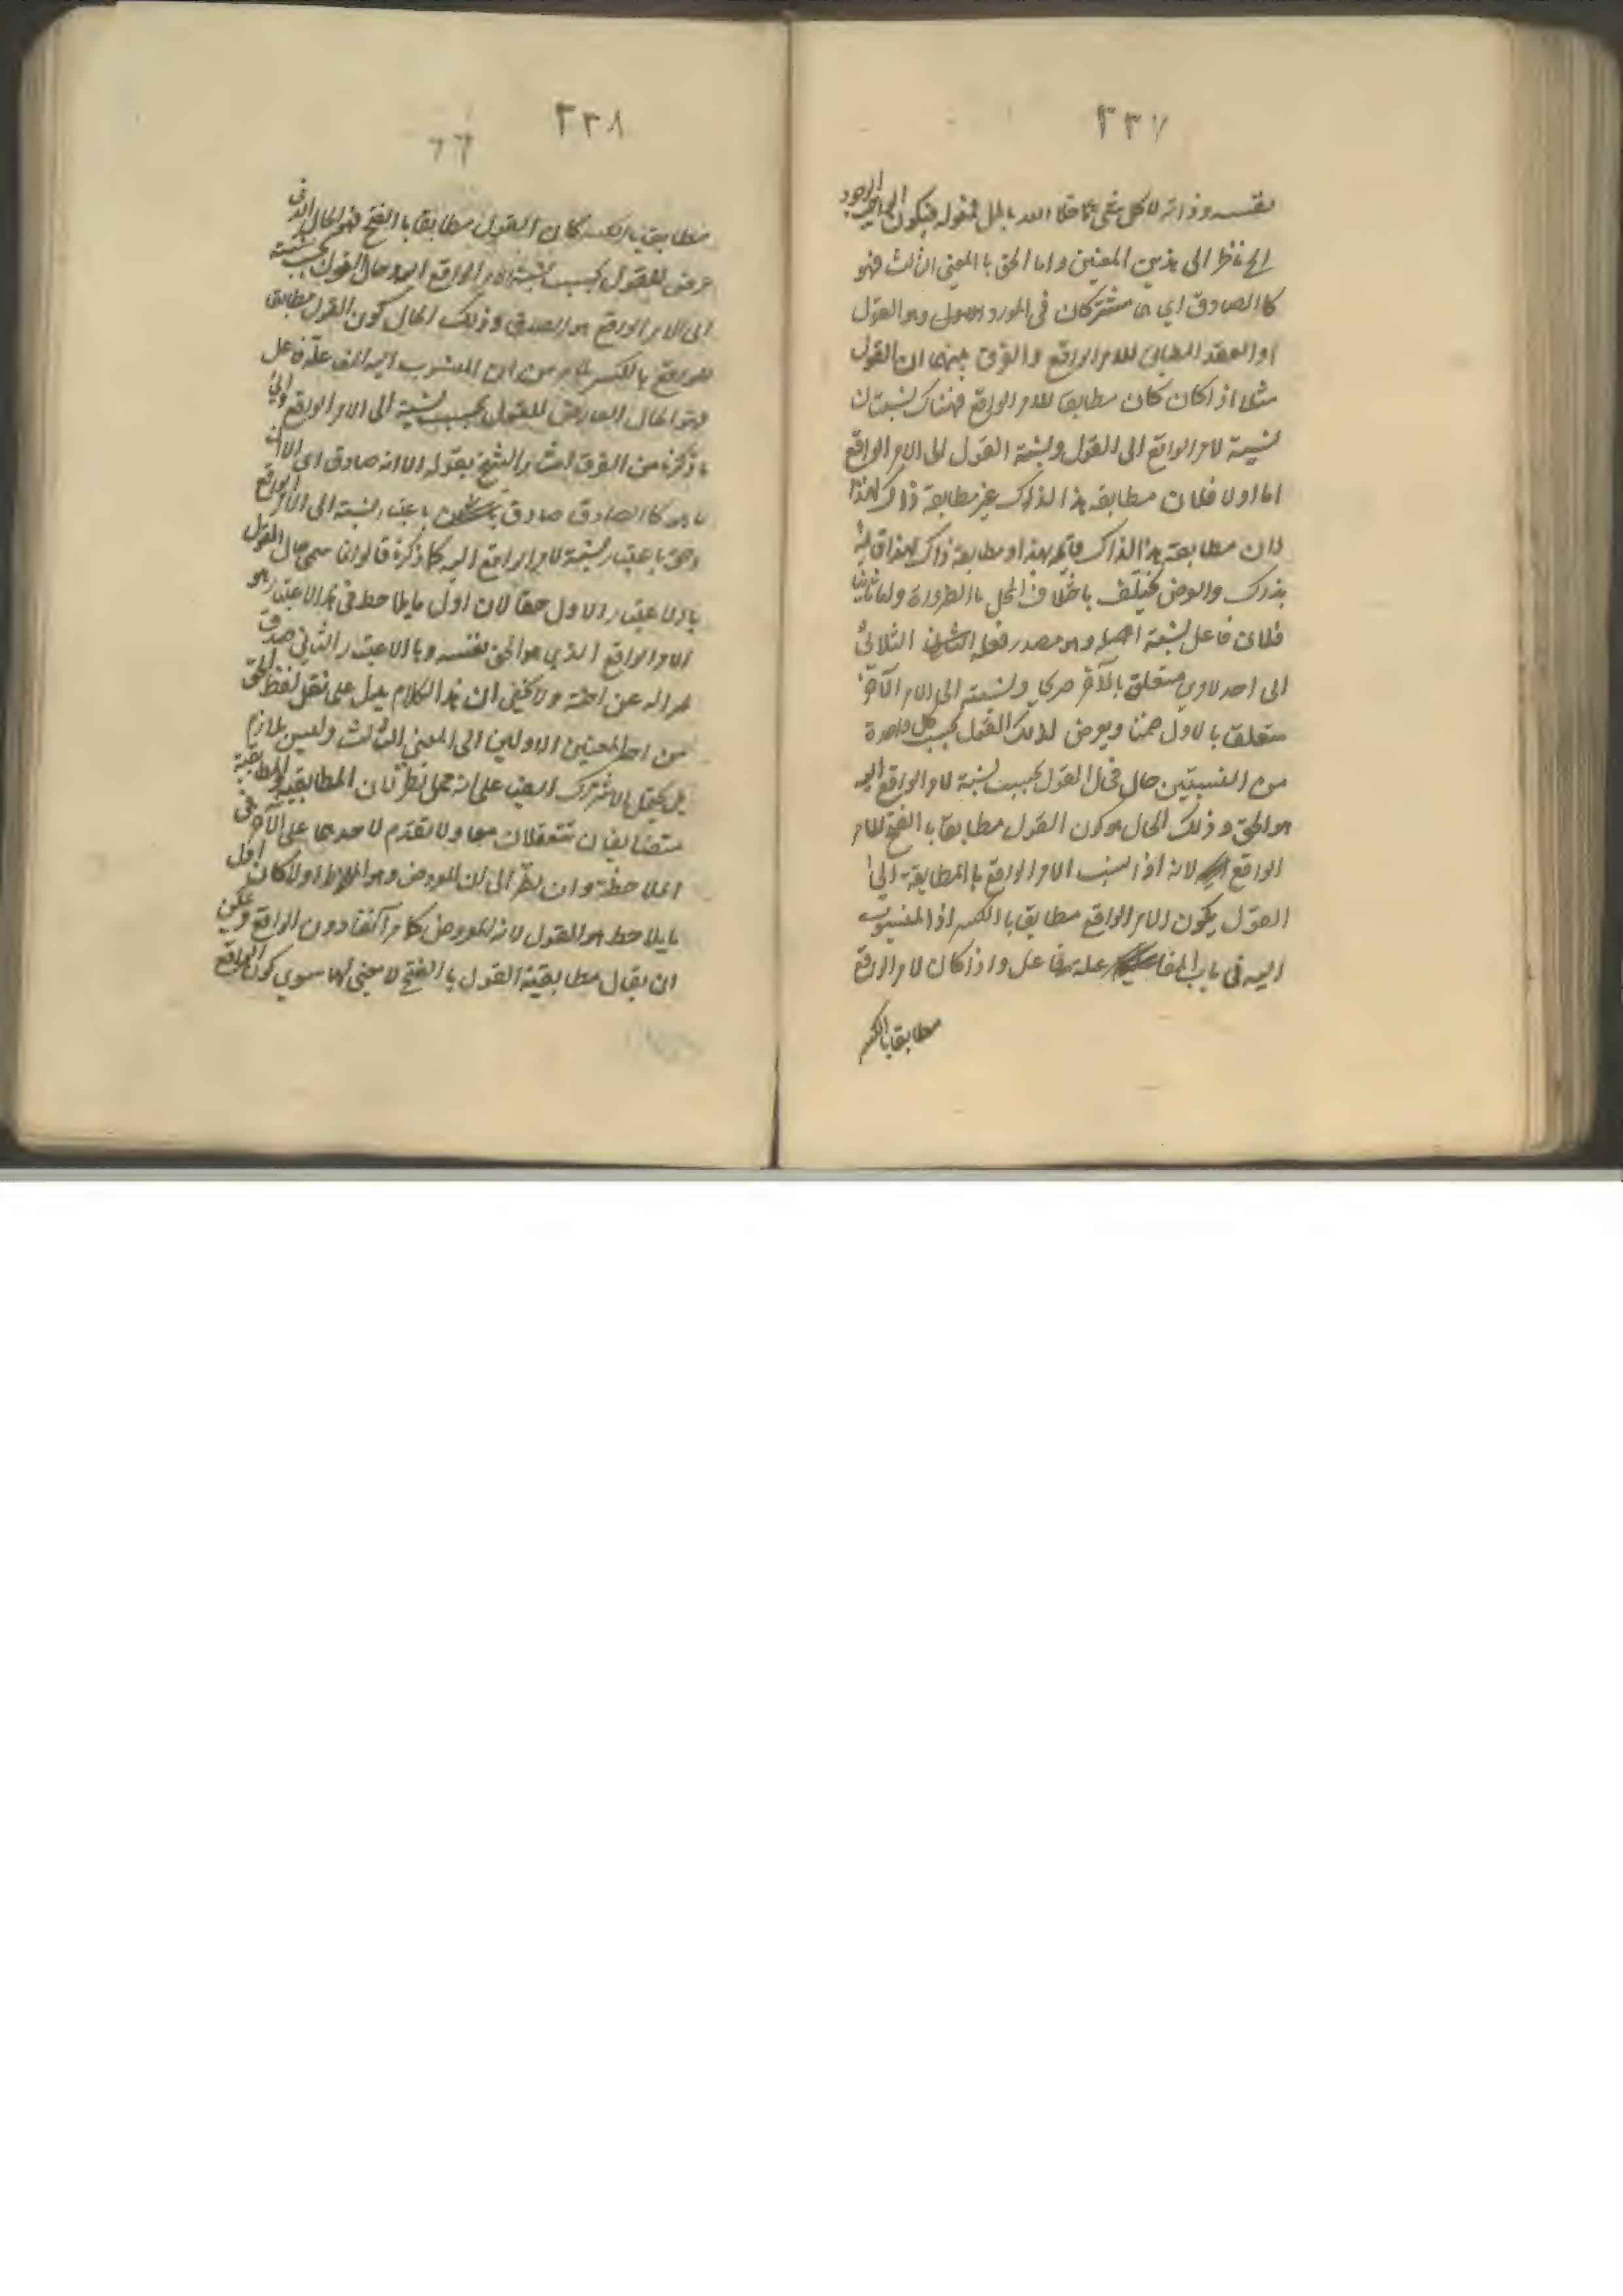 ٣٣٧
بنفسه وذاته لا كل شئ ما خلا الله باطل فيكون الواجب الوجود
الخ ناظرا الى هذين المعنيين واما الحق بالمعنى الثالث فهو
كالصادق اي هما مشتركان في المورد وهو القول
او العقد المطابق للامر الواقع والفرق بينهما ان القول
مثلا اذا كان كان مطابقا للامر الواقع فهناك نسبتان
نسبة الامر الواقع الى القول ونسبة القول الى الامر الواقع
اما اولا فلان مطابقة هذا لذاك غير مطابقة ذاك لهذا
لان مطابقة هذا لذاك قائم بهذا ومطابقة ذاك لهذا قائمة
بذاك والعرض يختلف باختلاف المحل بالضرورة واما ثانيا
فلان فاعل نسبة وهو مصدر فعله الثلاثي
الى احد الامرين متعلق بالآخر صريحا ونسبته الى الامر الآخر
متعلق بالاول ضمنا ويعرض لذلك القول بحسب كل واحدة
من النسبتين حال فحال القول بحسب نسبة الامر الواقع اليه
هو الحق وذلك الحال هو كون القول مطابقا بالفتح للامر
الواقع لانه اذا نسب الامر الواقع بالمطابقة الى
القول يكون الامر الواقع مطابقا بالكسر اذ المنسوب
اليه في باب المفاعلة فاعل واذا كان الامر الواقع
مطابقا بالكسر
٣٣٨
٦٦
مطابقا بالكسر كان القول مطابقا بالفتح فهو الحال الذي
عرض للقول بحسب نسبة الامر الواقع اليه وحال القول بحسب نسبته
الى الامر الواقع هو الصدق وذلك الحال كون القول مطابقا
للواقع بالكسر لما مر من ان المنسوب اليه المفاعلة فاعل
وهو الحال العارض للقول بحسب نسبته الى الامر الواقع والى
ما ذكره من الفرق اشار الشيخ بقوله الا انه صادق اي الا ان
ما هو كالصادق صادق باعتبار نسبته الى الامر الواقع
وحق باعتبار نسبة الامر الواقع اليه كما ذكره قالوا انما سمى حال القول
بالاعتبار الاول حقا لان اول ما يلاحظ في هذا الاعتبار هو
الامر الواقع الذي هو الحق بنفسه وبالاعتبار الثاني صدق
ولا يخفى ان هذا الكلام يدل على نقل لفظ الحق
من احد المعنيين الاولين الى المعنى الثالث وليس بلازم
بل يحتمل الاشتراك ايضا على انه محل نظر لان المطابقية والمطابقية
متضايفان تتعقلان معا ولا تقدم لاحدهما على الآخر في
الملاحظة وان نظر الى ان المعروض هو الملاحظ اولا كان اول
ما يلاحظ هو القول لانه المعروض كما مر آنفا دون الواقع ويمكن
ان يقال مطابقية القول بالفتح لا معنى لها سوى كون الواقع